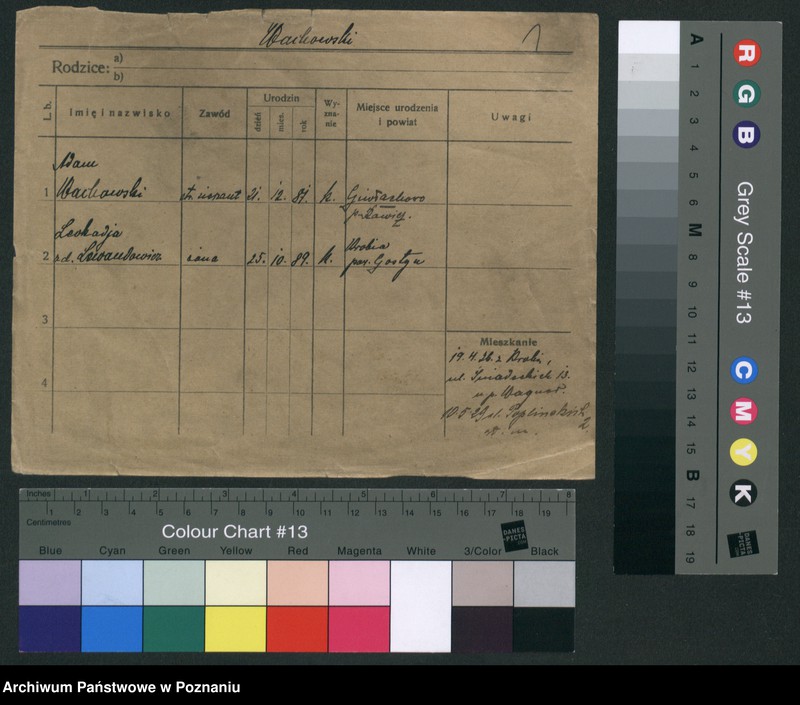 Wachowski
Rodzice: a)
b)
L. b.
Imię i nazwisko
Zawód
Urodzin
dzień
mies.
rok
Wy-
zna-
nie
Miejsce urodzenia
i powiat
Uwagi
Adam
1 Wachowski 21. 12. 87. k.
p. Rawicz
Leokadja
Krobia
2 rd. Lewandowicz żona 25. 10. 89. k. pow. Gostyń
3
4
Mieszkanie
19.4.26. z Krobi,
ul. Śniadeckich 13.
u p. Wagner.
10.5.29 ul.
Inches 1 2 3 4 5 6 7 8
1 2 3 4 5 6 7 8 9 10 11 12 13 14 15 16 17 18 19
Centimetres
Colour Chart #13
DANES
-PICTA
.COM
Blue Cyan Green Yellow Red Magenta White 3/Color Black
A 1 2 3 4 5 6 M 8 9 10 11 12 13 14 15 B 17 18 19
R G B
Grey Scale #13
C M Y K
DANES
-PICTA
.COM
Archiwum Państwowe w Poznaniu